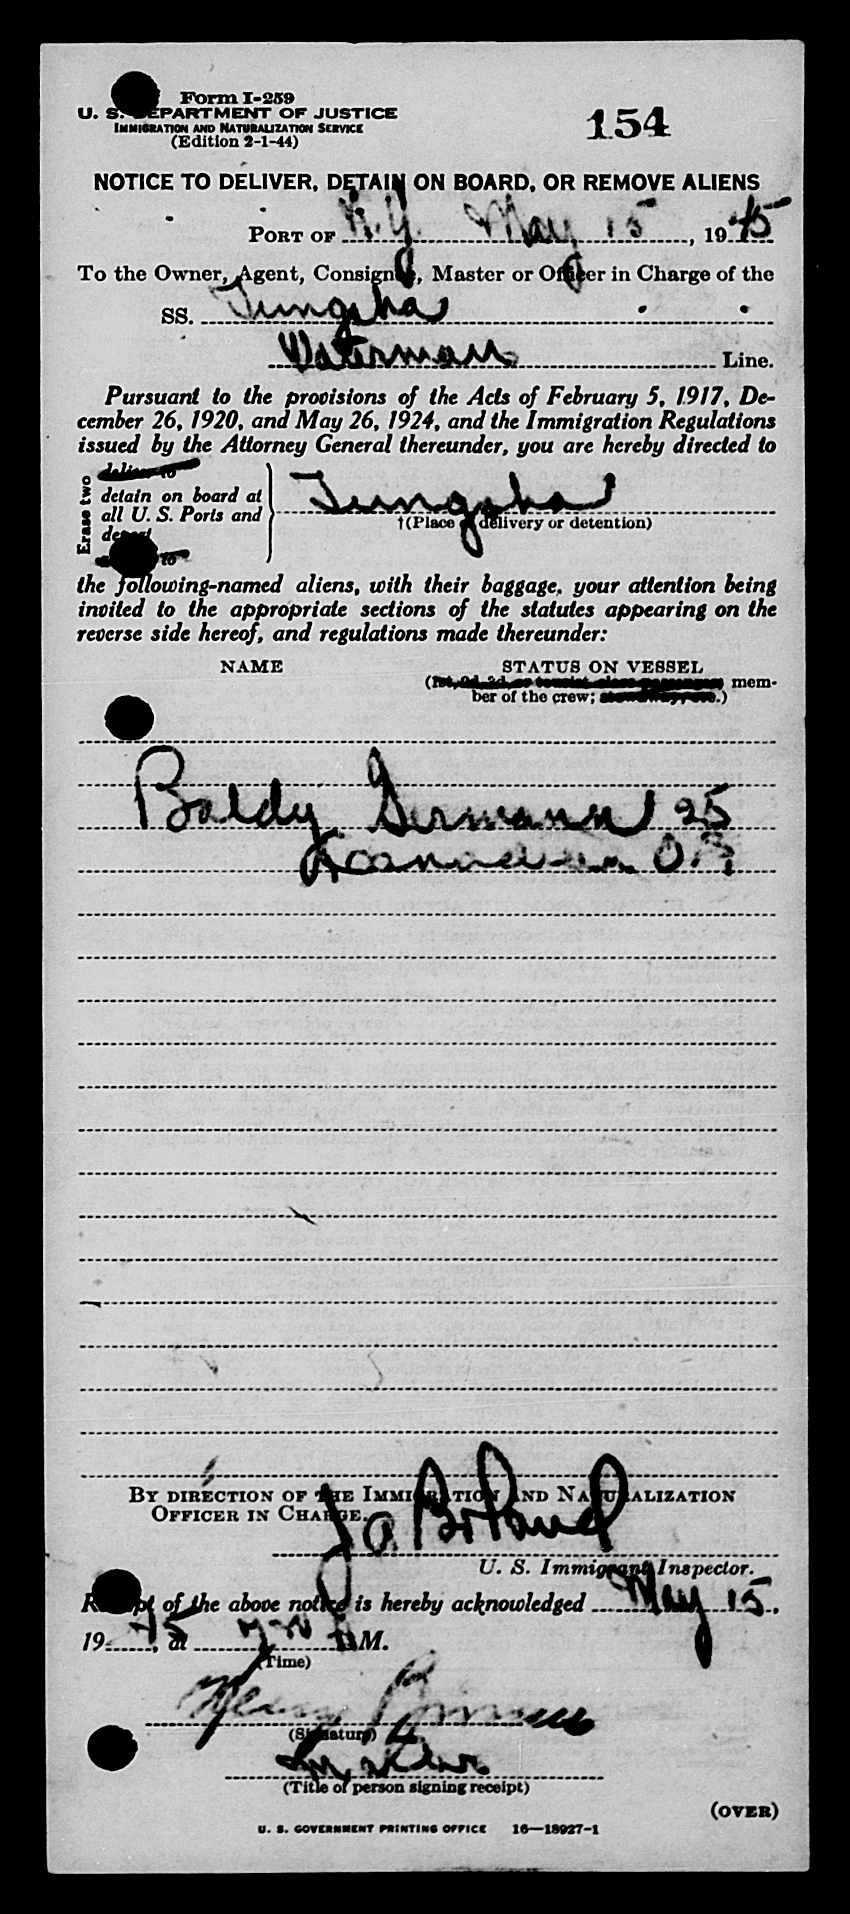 Form I-259
U. S. DEPARTMENT OF JUSTICE
IMMIGRATION AND NATURALIZATION SERVICE
(Edition 2-1-44)
154
NOTICE TO DELIVER, DETAIN ON BOARD, OR REMOVE ALIENS
PORT OF N.Y. May 15, 1945
To the Owner, Agent, Consignee, Master or Officer in Charge of the
SS. Tungsha
Waterman Line.
Pursuant to the provisions of the Acts of February 5, 1917, De-
cember 26, 1920, and May 26, 1924, and the Immigration Regulations
issued by the Attorney General thereunder, you are hereby directed to
Erase two
deliver to
detain on board at
all U. S. Ports and
deport
to
Tungsha
†(Place of delivery or detention)
the following-named aliens, with their baggage, your attention being
invited to the appropriate sections of the statutes appearing on the
reverse side hereof, and regulations made thereunder:
NAME STATUS ON VESSEL
(1st, 2d, 3d, or tourist class passenger; mem-
ber of the crew; stowaway, etc.)
Baldy Germann 25
BY DIRECTION OF THE IMMIGRATION AND NATURALIZATION
OFFICER IN CHARGE.
U. S. Immigrant Inspector.
Receipt of the above notice is hereby acknowledged May 15,
1945, at M.
(Time)
Henry
(Signature)
(Title of person signing receipt)
(OVER)
U. S. GOVERNMENT PRINTING OFFICE 16—18927-1